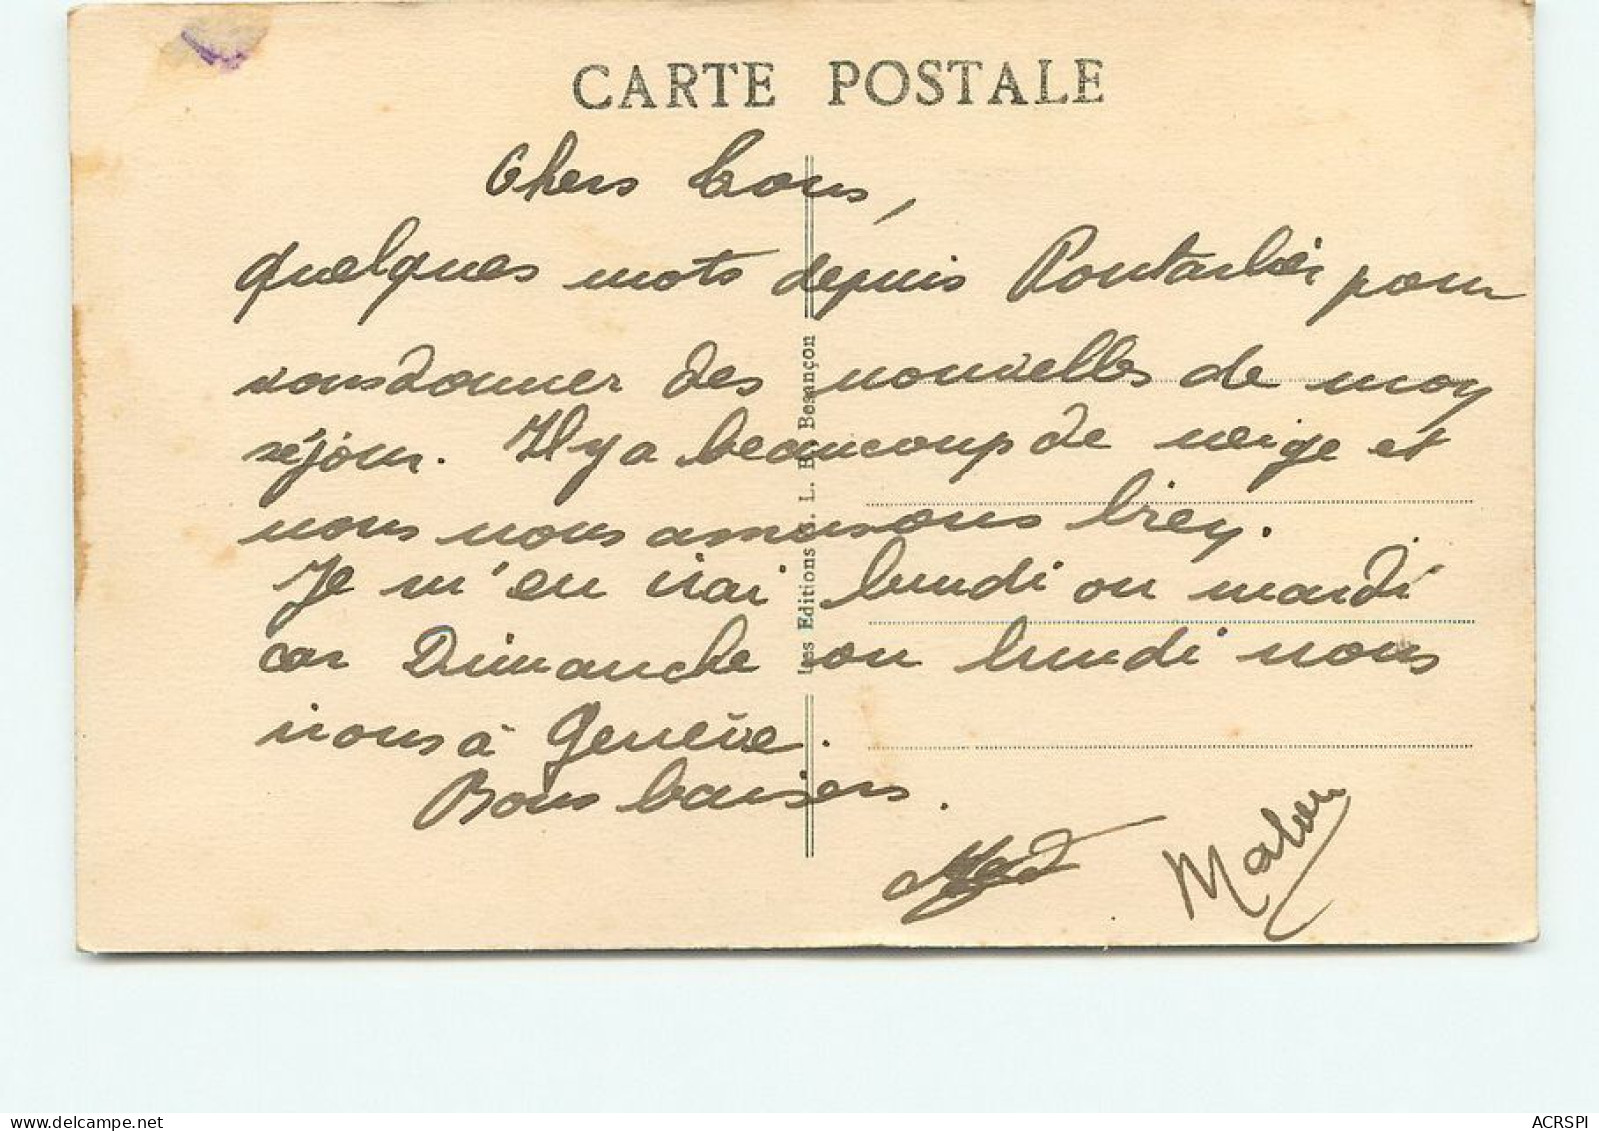 CARTE POSTALE
Chers tous,
quelques mots depuis Pontarlier pour
vous donner des nouvelles de mon
séjour. Il y a beaucoup de neige et
nous nous amusons bien.
Je m'en irai lundi ou mardi
car Dimanche ou lundi nous
irons à Genève.
Bons baisers.
Les Editions C. L. B. Besançon
ACRSPI